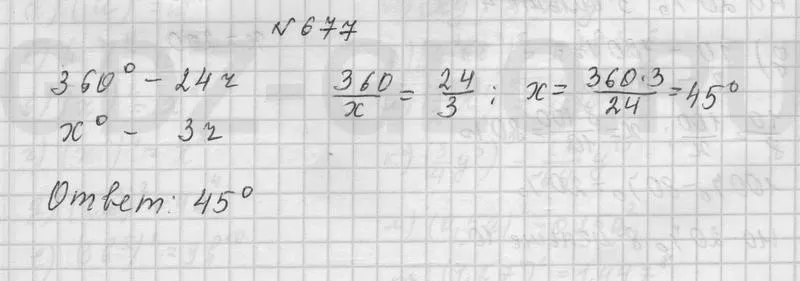 №677
360° - 24ч
x° - 3ч
360/x = 24/3; x = 360·3/24 = 45°
Ответ: 45°